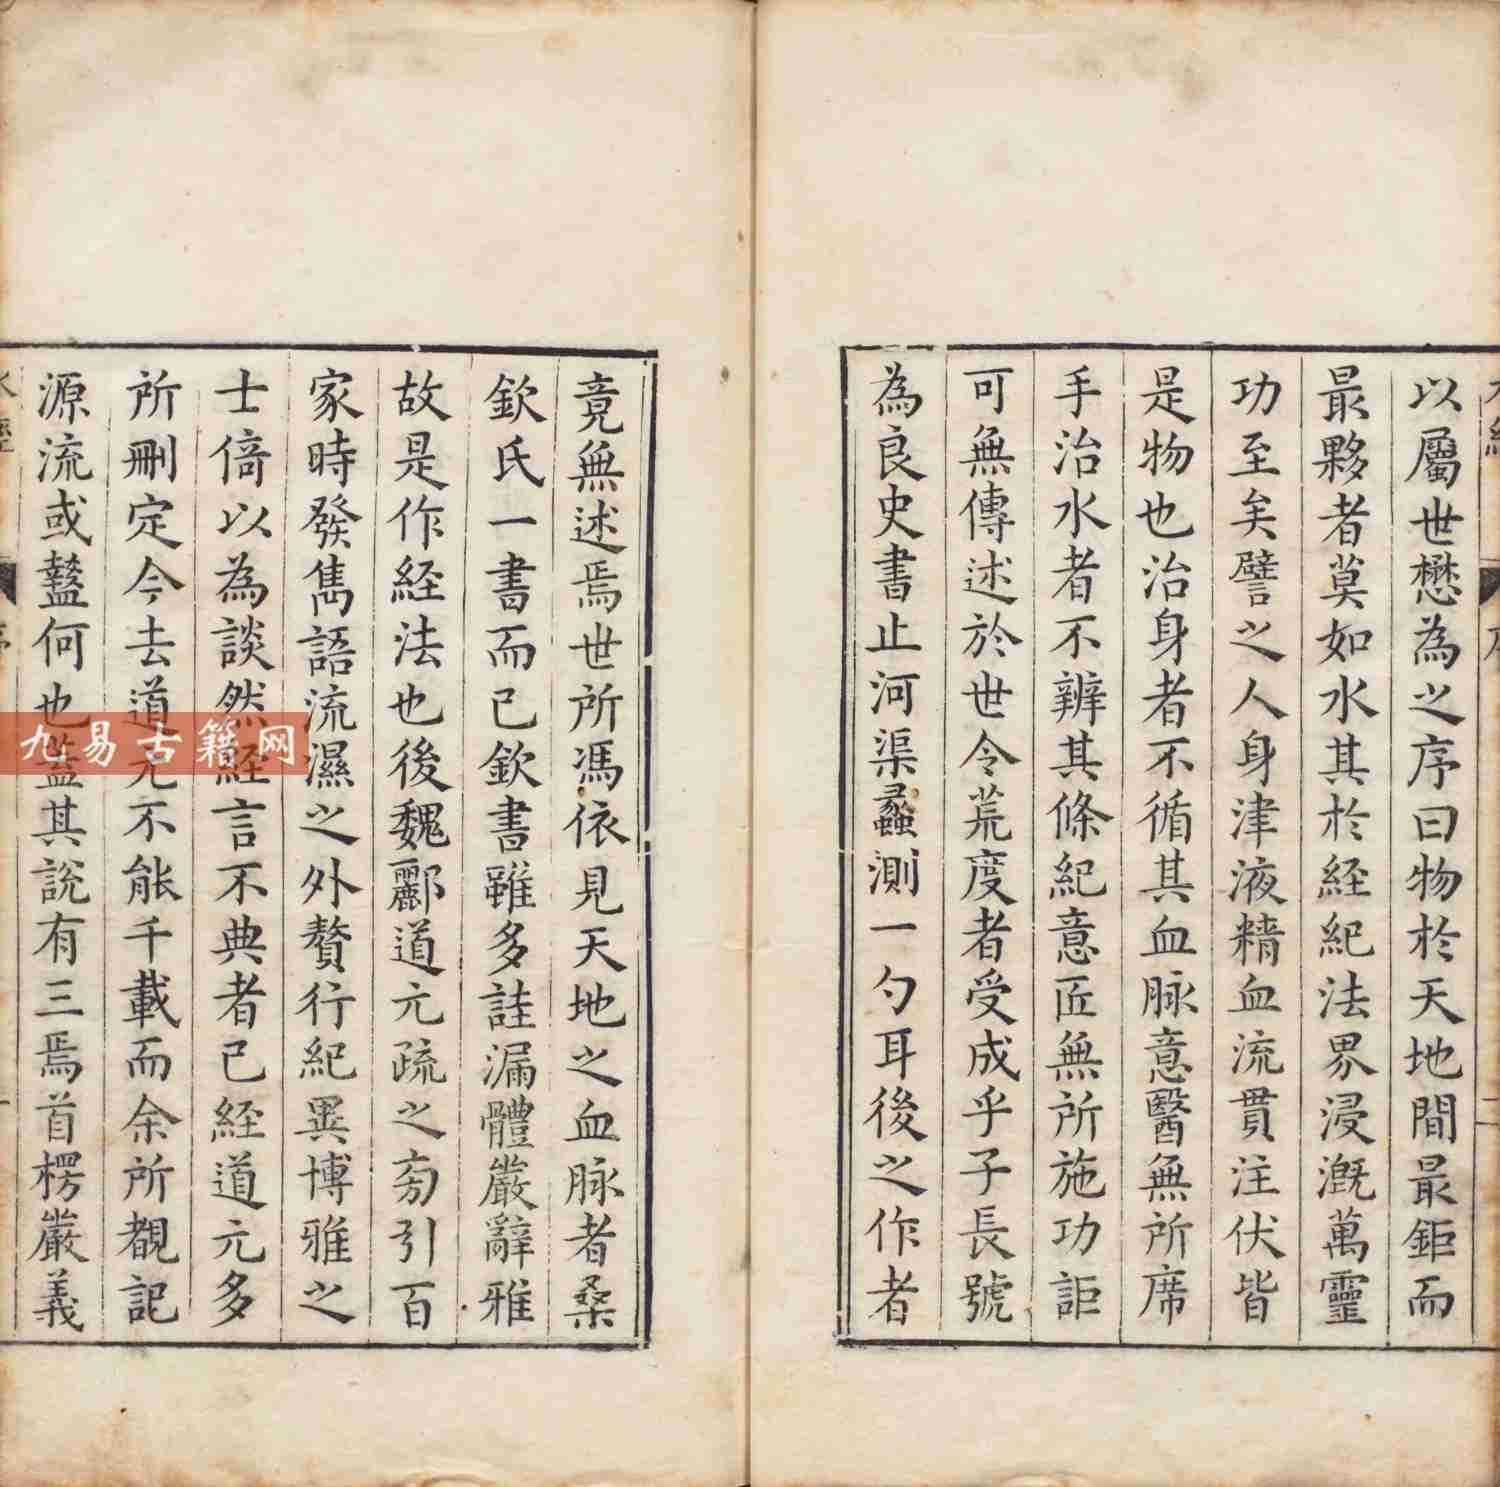 以屬世懋為之序曰物於天地間最鉅而
最夥者莫如水其於経紀法界浸溉萬靈
功至矣譬之人身津液精血流貫注伏皆
是物也治身者不循其血脉意醫無所席
手治水者不辨其條紀意匠無所施功詎
可無傳述於世令荒度者受成乎子長號
為良史書止河渠蠡測一勺耳後之作者
竟無述焉世所馮依見天地之血脉者桑
欽氏一書而已欽書雖多詿漏體嚴辭雅
故是作経法也後魏酈道元疏之旁引百
家時發雋語流濕之外贅行紀異博雅之
士倚以為談然経言不典者已経道元多
所刪定今去道元不能千載而余所覩記
源流或盭何也蓋其說有三焉首楞嚴義
九易古籍网